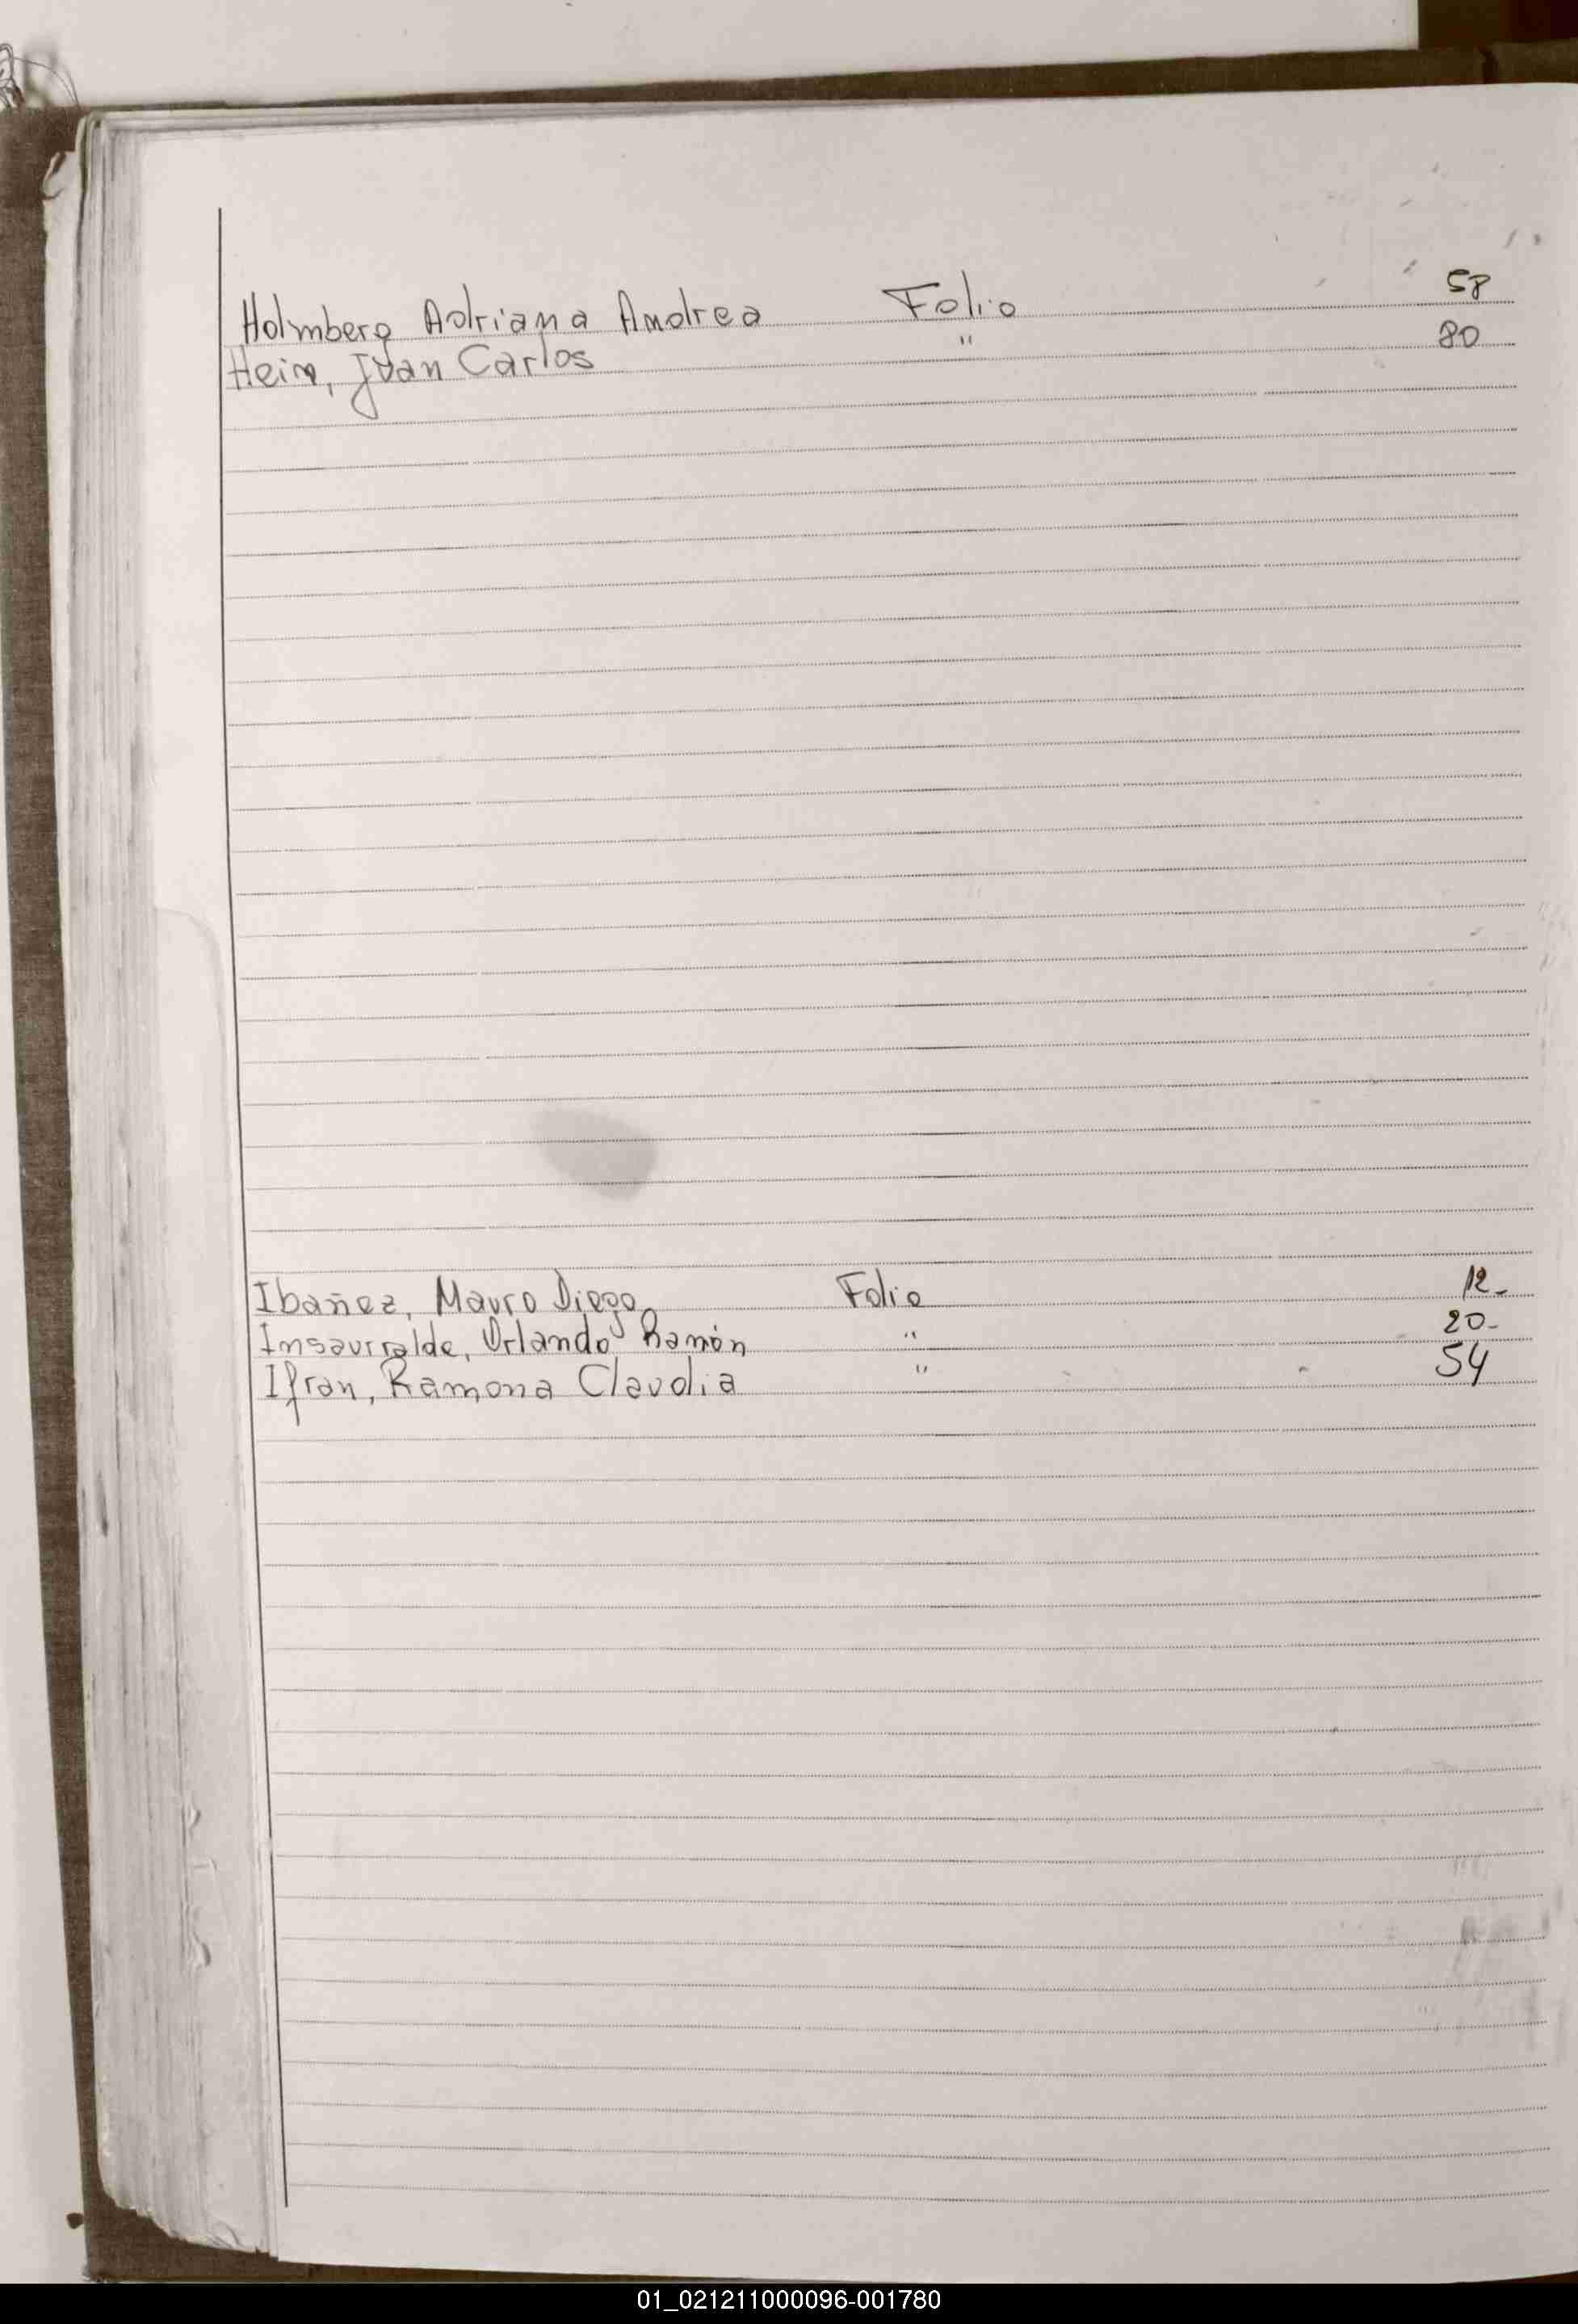 Holmberg Adriana Andrea Folio 58
Hein, Juan Carlos " 80
Ibañez, Mauro Diego Folio 12-
Insaurralde, Orlando Ramón " 20-
Ifran, Ramona Claudia " 54
01_021211000096-001780